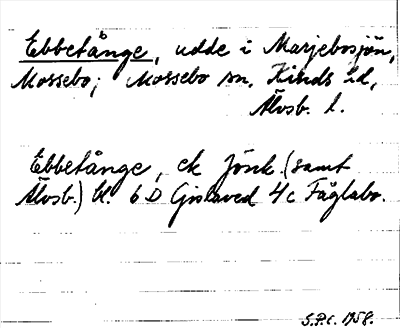 Ebbetånge, udde i Marjebosjön,
Mossebo; Mossebo sn, Kinds hd,
Älvsb. l.
Ebbetånge, ek Jönk. (samt
Älvsb.) bl. 6 D Gislaved 4c Fåglabo.
S.P.C. 1958.